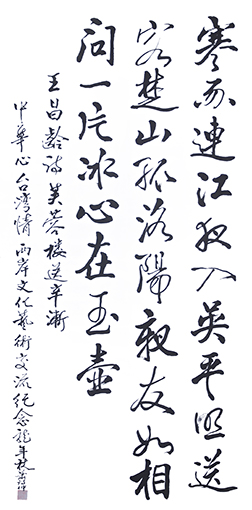 寒雨連江夜入吴平明送
客楚山孤洛陽親友如相
問一片冰心在玉壺
王昌齡詩芙蓉楼送辛漸
中華心台灣情两岸文化藝術交流纪念龍年秋